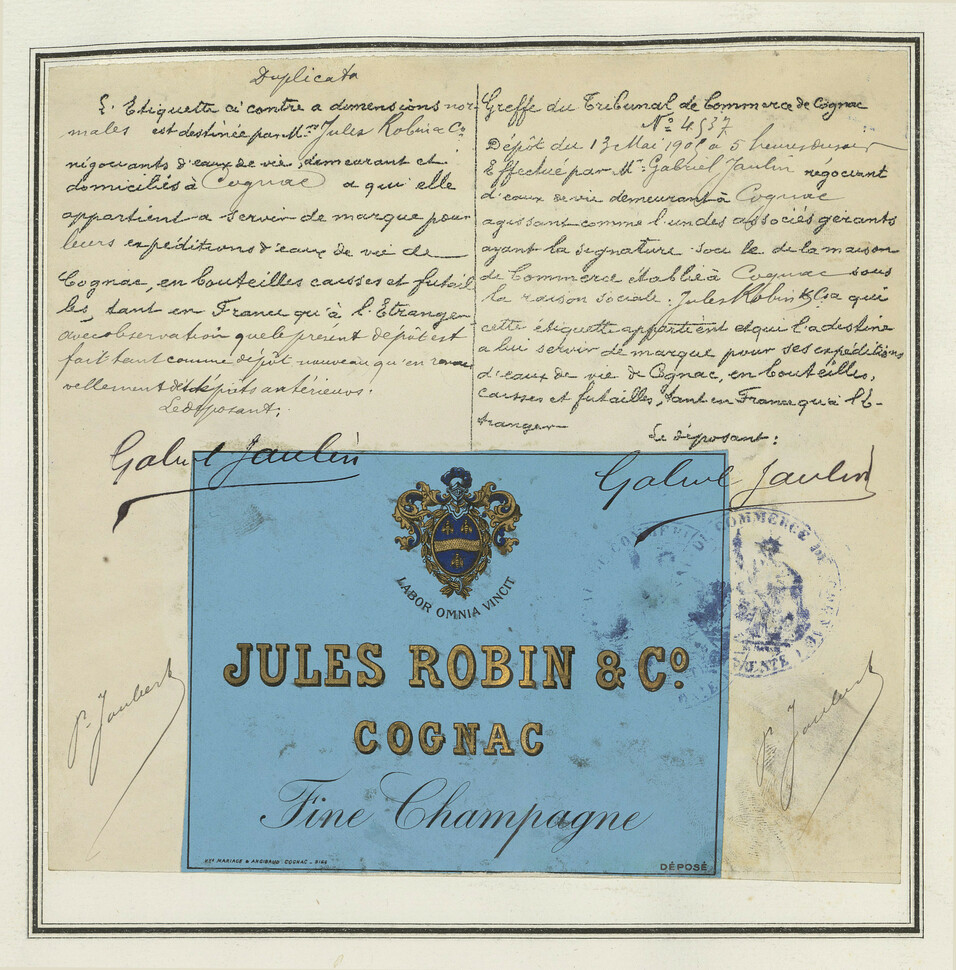 Duplicata
L'Etiquette ci contre a dimensions nor
males est destinée par Mrs Jules Robin & Co
négociants d'eaux de vie, demeurant et
domiciliés à Cognac a qui elle
appartient a servir de marque pour
leurs expéditions d'eaux de vie de
Cognac, en bouteilles caisses et futail
les, tant en France qu'à l'Etranger
avec observation que le présent dépôt est
fait tant comme dépôt nouveau qu'en renou
vellement de dépôts antérieurs.
Le déposant:
Gabriel Jaulin
Greffe du Tribunal de Commerce de Cognac
No 4537
Dépôt du 13 Mai a 5 heures du soir
Effectué par Mr Gabriel Jaulin négociant
d'eaux de vie demeurant à Cognac
agissant comme l'un des associés gérants
ayant la signature sociale de la maison
de Commerce établie à Cognac sous
la raison sociale: Jules Robin & Co a qui
cette étiquette appartient et qui l'a destine
a lui servir de marque pour ses expéditions
d'eaux de vie de Cognac, en bouteilles,
caisses et futailles, tant en France qu'à l'E-
tranger
Le déposant:
Gabriel Jaulin
LABOR OMNIA VINCIT
JULES ROBIN & Co.
COGNAC
Fine Champagne
MARIAGE & ANGIBAUD COGNAC
DÉPOSÉ
COMMERCE DE